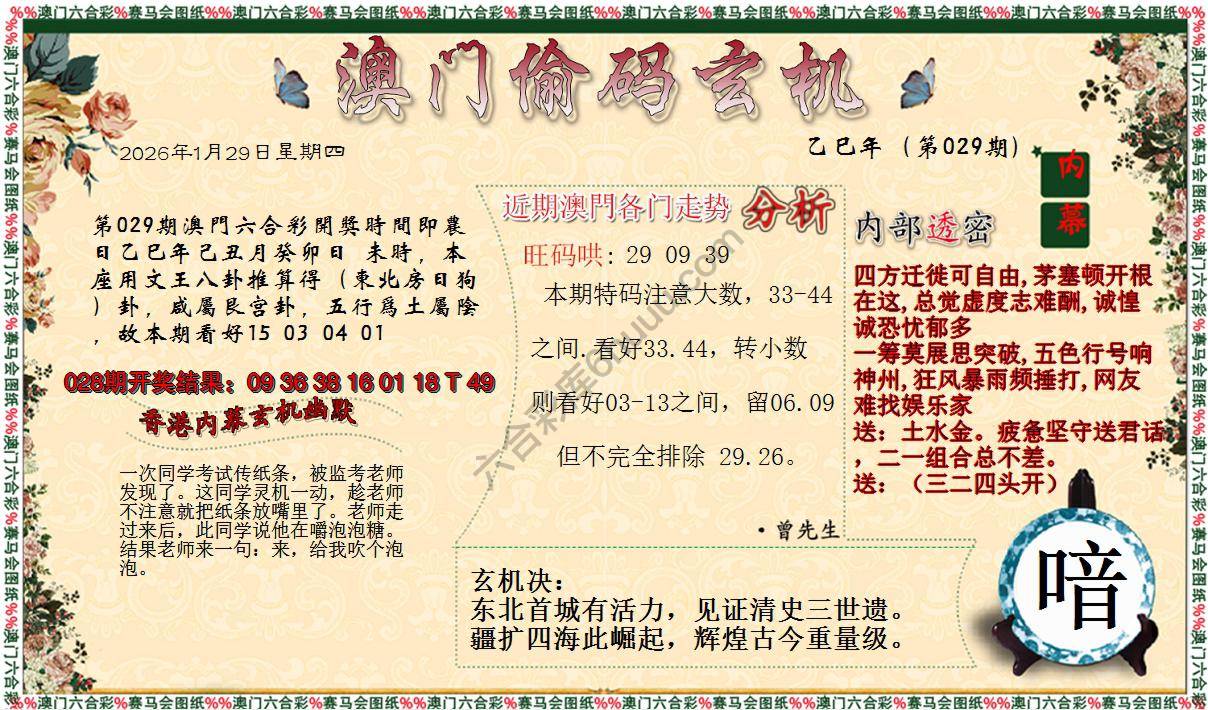 %%澳门六合彩%赛马会图纸%%澳门六合彩%赛马会图纸%%澳门六合彩%赛马会图纸%%澳门六合彩%赛马会图纸%%澳门六合彩%赛马会图纸%%澳门六合彩%赛马会图纸%%澳门六合彩%赛马会图纸%%
澳门偷码玄机
2026年1月29日星期四
乙巳年（第029期）
内
幕
第029期澳門六合彩開獎時間即農
日乙巳年己丑月癸卯日 未時，本
座用文王八卦推算得（東北房日狗
）卦，咸屬艮宫卦，五行爲土屬陰
，故本期看好15 03 04 01
028期开奖结果：09 36 38 16 01 18 T 49
香港内幕玄机幽默
一次同学考试传纸条，被监考老师
发现了。这同学灵机一动，趁老师
不注意就把纸条放嘴里了。老师走
过来后，此同学说他在嚼泡泡糖。
结果老师来一句：来，给我吹个泡
泡。
近期澳門各门走势 分析
旺码哄: 29 09 39
本期特码注意大数，33-44
之间.看好33.44，转小数
则看好03-13之间，留06.09
但不完全排除 29.26。
·曾先生
内部透密
四方迁徙可自由,茅塞顿开根
在这,总觉虚度志难酬,诚惶
诚恐忧郁多
一筹莫展思突破,五色行号响
神州,狂风暴雨频捶打,网友
难找娱乐家
送：土水金。疲惫坚守送君话
，二一组合总不差。
送：（三二四头开）
玄机决：
东北首城有活力，见证清史三世遗。
疆扩四海此崛起，辉煌古今重量级。
喑
%%澳门六合彩%赛马会图纸%%澳门六合彩%赛马会图纸%%澳门六合彩%赛马会图纸%%澳门六合彩%赛马会图纸%%澳门六合彩%赛马会图纸%%澳门六合彩%赛马会图纸%%澳门六合彩%赛马会图纸%%